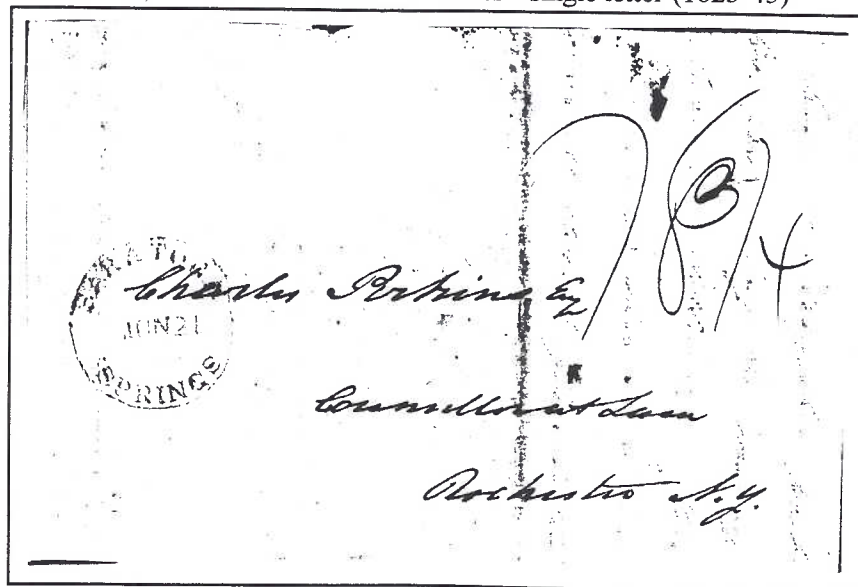 single letter (1825-45)
18 3/4
SARATOGA
JUN 21
SPRINGS
Charles Perkins Esq
Counsellor at Law
Rochester N.Y.